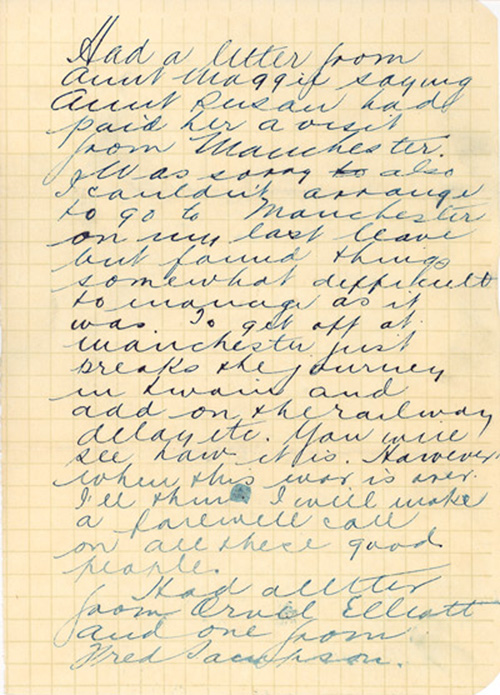 Had a letter from
Aunt Maggie saying
Aunt Susan had
paid her a visit
from Manchester.
Was sorry to also
I couldn't arrange
to go to Manchester
on my last leave
but found things
somewhat difficult
to manage as it
was. To get off at
Manchester just
breaks the journey
in twain and
add on the railway
delay etc. You will
see how it is. However
when this war is over
I'll think I will make
a farewell call
on all these good
people.
Had a letter
from Orvil Elliott
and one from
Fred Sampson.